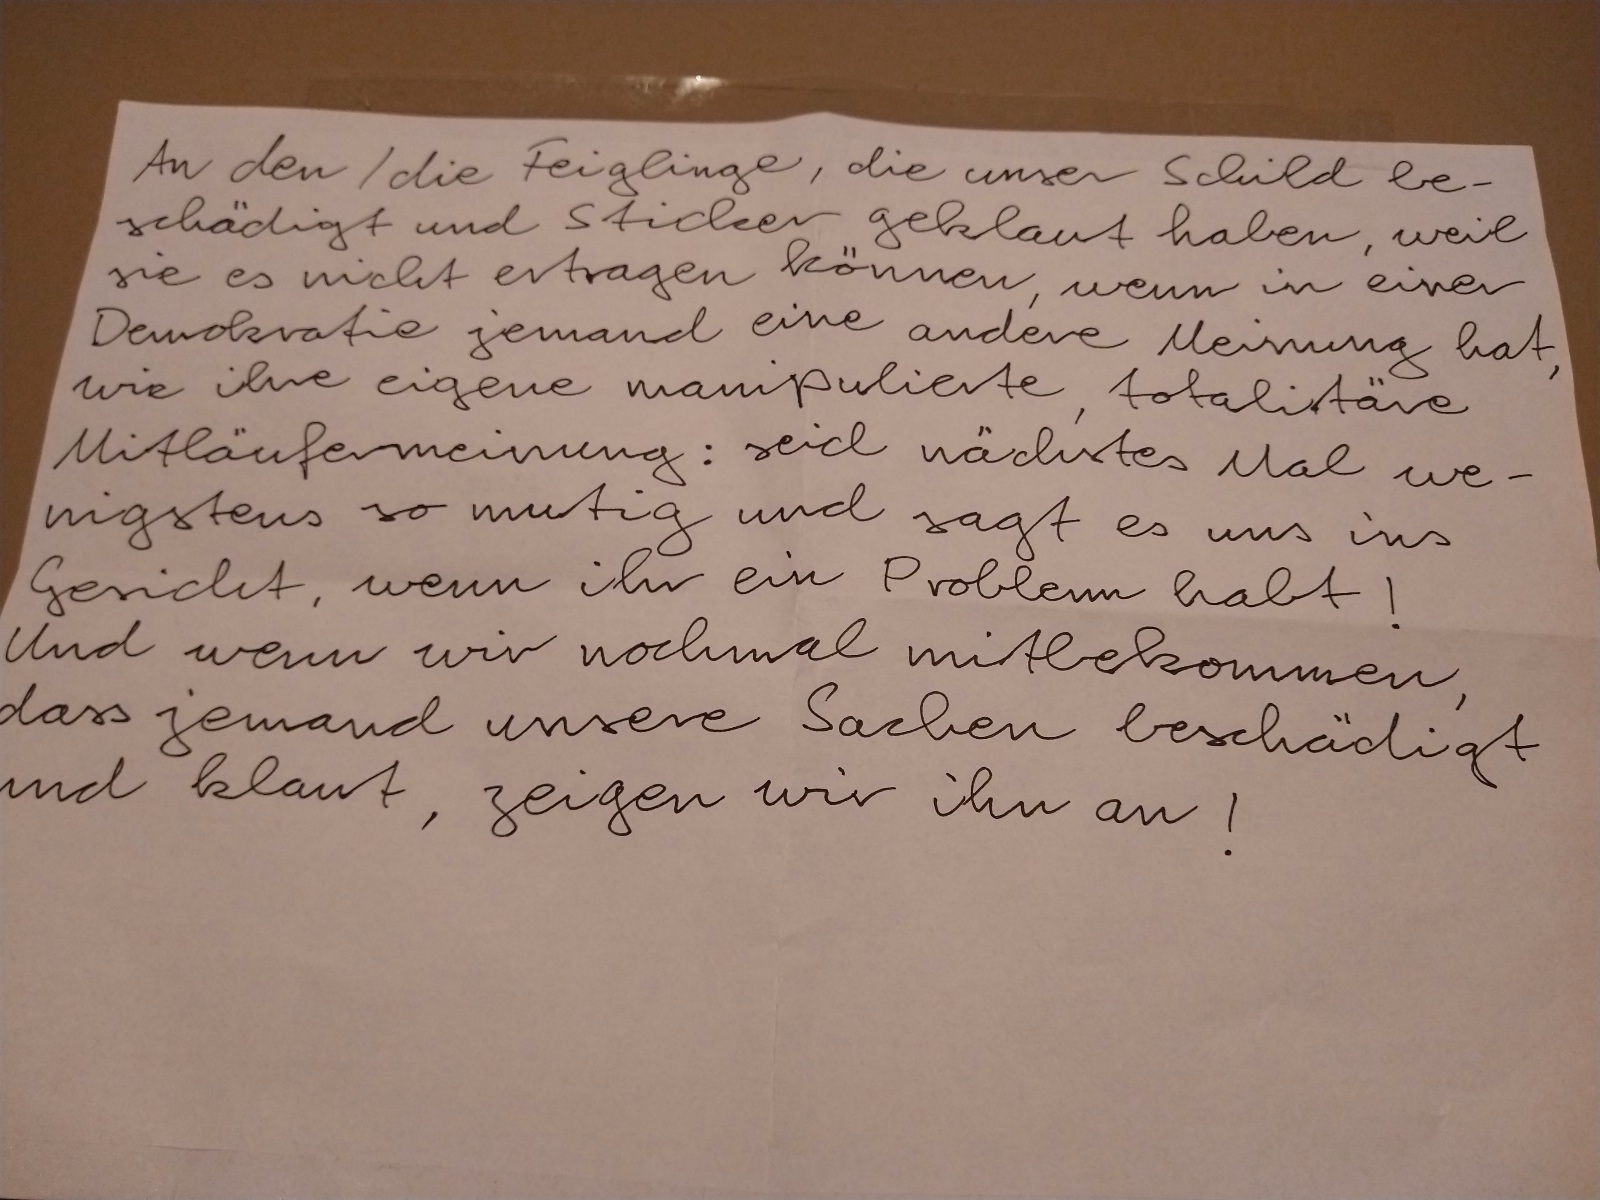 An den / die Feiglinge, die unser Schild be-
schädigt und Sticker geklaut haben, weil
sie es nicht ertragen können, wenn in einer
Demokratie jemand eine andere Meinung hat,
wie ihre eigene manipulierte, totalitäre
Mitläufermeinung: seid nächstes Mal we-
nigstens so mutig und sagt es uns ins
Gesicht, wenn ihr ein Problem habt!
Und wenn wir nochmal mitbekommen,
dass jemand unsere Sachen beschädigt
und klaut, zeigen wir ihn an!